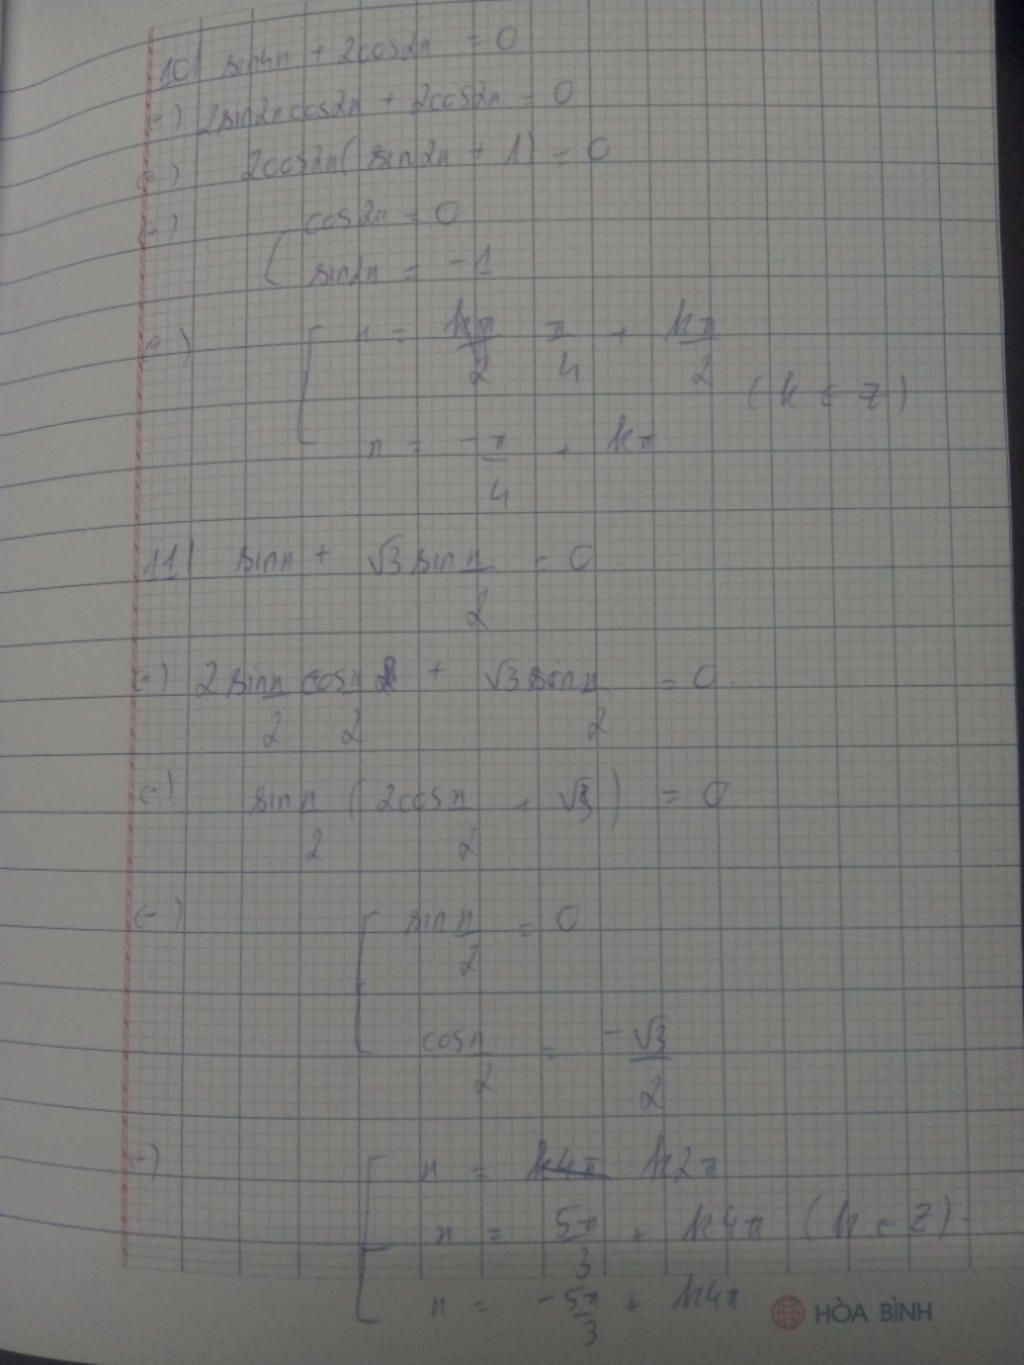 10) sin4x + 2cos2x = 0
(=) 2sin2xcos2x + 2cos2x = 0
(=) 2cos2x(sin2x + 1) = 0
(=) cos2x = 0
sin2x = -1
(=) x = π/4 + kπ/2
(k ∈ Z)
x = -π/4 + kπ
11) sinx + √3 sin x/2 = 0
(=) 2 sin x/2 cos x/2 + √3 sin x/2 = 0
(=) sin x/2 (2cos x/2 + √3) = 0
(=) sin x/2 = 0
cos x/2 = -√3/2
(=) x = k2π
x = 5π/3 + k4π (k ∈ Z)
x = -5π/3 + k4π
HÒA BÌNH